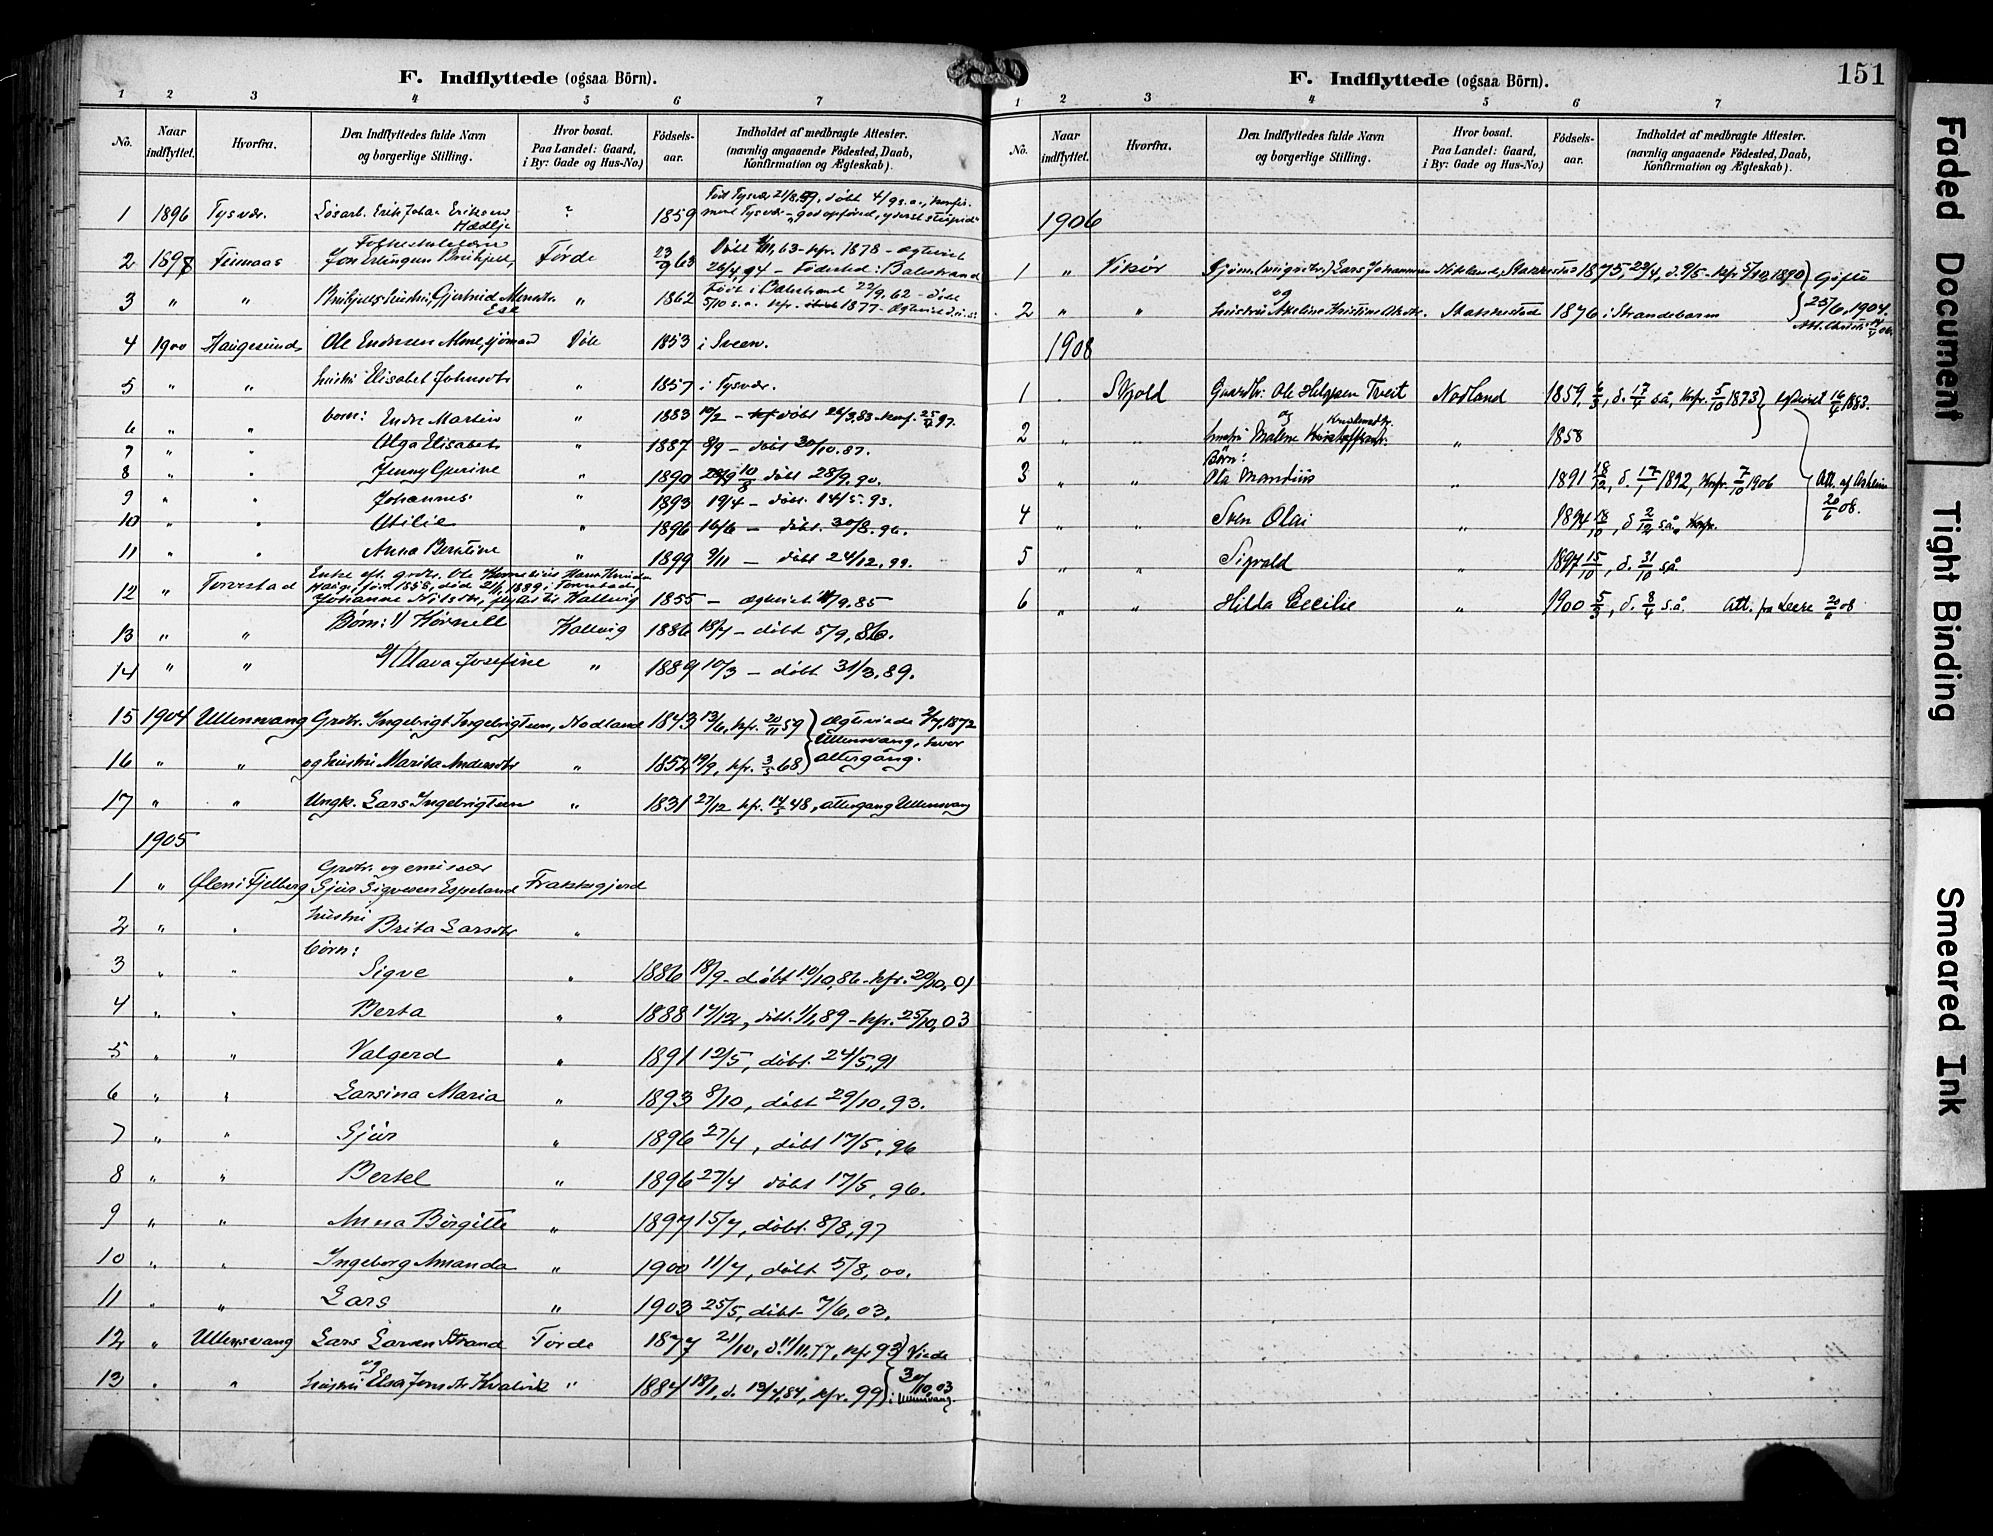 F. Indflyttede (ogsaa Börn).
1 2 3 4 5 6 7
No. Naar indflyttet. Hvorfra. Den Indflyttedes fulde Navn og borgerlige Stilling. Hvor bosat. Paa Landet: Gaard, i By: Gade og Hus-No.) Fødsels-aar. Indholdet af medbragte Attester. (navnlig angaaende Födested, Daab, Konfirmation og Ægteskab).
1 1896 Tysvær. Løsarb. Erik Johan Eriksen ? 1859 Født Tysvær 21/8.59, døbt 4/9 s.a., konfir.
2 1898 Finnaas Folkeskolelærer Jon Erlingsen Førde 23/9 63 Døbt 63 - kfr. 1878 - ægteviet
26/4,94 - Fødested: Balestrand
3 " " Gjertrud " 1862 Født i Balestrand 22/9.62 - døbt
5/10 s.a. kfr. 1877 -
4 1900 Haugesund Ole Endresen sjømand 1853 i Sveen.
5 " " hustru Elisabet Johnsdtr " 1857 i Tysvær.
6 " " born: Endre Martin " 1883 døbt 26/3.83 - konf. 97.
7 " " Olga Elisabet " 1887 8/9 - døbt 30/10.87.
8 " " Jenny Gurine " 1890 10/8 døbt 28/9.90.
9 " " Johannes " 1893 19/4 - døbt 14/5.93.
10 " " Otilie " 1896 16/6 - døbt. 30/8.96.
11 " " Anna Berntine " 1899 9/11 - døbt 24/12.99.
12 " Torvestad Enke eft. grdbr. Ole
Johanne Kallevig 1855 - ægteviet /9.85
13 " " Børn: 1/ Kornell Kallvig 1886 18/7 - døbt 5/9, 86.
14 " " 2/ Olava Josefine " 1889 10/3 - døbt 31/3.89.
15 1904 Ullensvang Grdbr. Ingebrigt Ingebrigtsen, Nodland 1843 13/6, kfr. 20/11 59 ægteviede 2/7, 1872
Ullensvang, hvor
16 " " og hustru Marita Andersdtr " 1852 19/9, kfr. 3/5 68 altergang.
17 " " Ungk. Lars Ingebrigtsen " 1831 27/12 kfr. 14/5 48, altergang Ullensvang
1905
1 " Ølen i Fjelberg Grdbr. og emissær
Sjur Sigvesen Espeland Frakkagjerd
2 " " hustru Brita Larsdtr "
børn:
3 " " Sigve " 1886 18/9 - døbt 10/10,86 - kfr. 20/10.01
4 " " Berta " 1888 17/12, døbt. 1/1,89 - kfr. 25/10,03
5 " " Valgerd " 1891 12/5, døbt. 24/5,91
6 " " Larsina Maria " 1893 8/10, døbt 29/10,93.
7 " " Sjur " 1896 27/4, døbt 17/5, 96
8 " " Bertel " 1896 27/4 døbt 17/5, 96.
9 " " Anna Børgitte " 1897 15/7, døbt. 8/8,97
10 " " Ingeborg Amanda " 1900 11/7, døbt 5/8, 00.
11 " " Lars " 1903 25/5, døbt - 7/6, 03.
12 " Ullensvang Lars Larsen Strand Førde 1877 21/10, d. 11/11.77, kfr 93 Viede
13 " " og hustru Elsa Jonsdtr Kvalvik " 1884 18/1, d. 13/4,84, kfr. 99 30/10,03
i Ullensvang.
F. Indflyttede (ogsaa Börn).
151
1 2 3 4 5 6 7
No. Naar indflyttet. Hvorfra. Den Indflyttedes fulde Navn og borgerlige Stilling. Hvor bosat. Paa Landet: Gaard, i By: Gade og Hus-No.) Fødsels-aar. Indholdet af medbragte Attester. (navnlig angaaende Födested, Daab, Konfirmation og Ægteskab).
1906
1 " Vikør Lars Johannesen 1875 23/4, d. 9/5 - kfr 5/10, 1890 Gifte
2 " " og hustru Akeline Kristine Stakkestad 1876 i Strandebarm 25/6, 1904.
1908
1 . Skjold Gaardbr. Ole Helgesen Tveit Nodland 1859, 6/3, d. 17/4 så, Konfr. 5/10 1873 Egteviet 16/6 1883.
2 " " og hustru Malene " 1858
Börn:
3 " " Ola Mandius " 1891 18/12, d. 17/1 1892, Konfr. 7/10 1906
4 " " Sven Olai " 1894 18/10, d 2/12 så
5 " " Sigvald " 1897 15/10, d. 31/10 så.
6 " " Hilda Cecilie " 1900 5/3, d. 8/4 så. Att. fra
Faded Document
Tight Binding
Smeared Ink